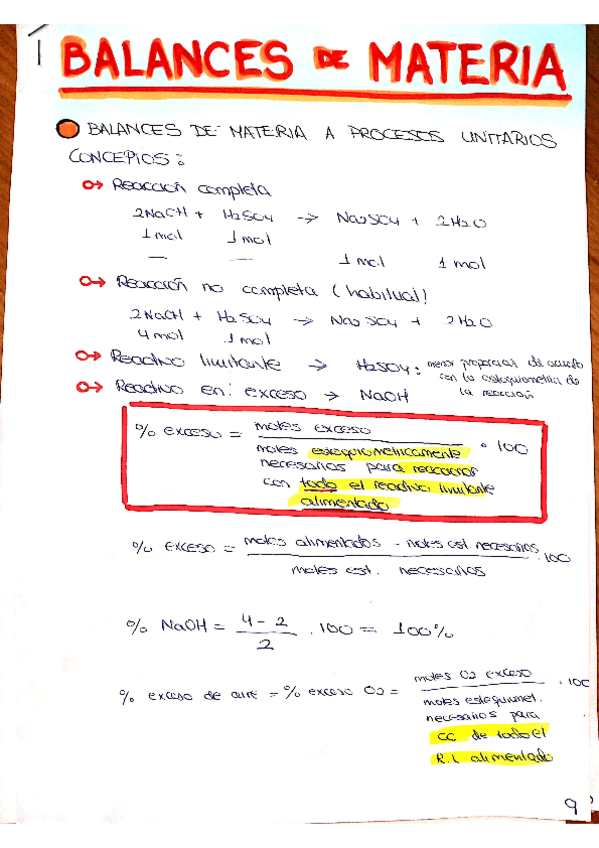 1
BALANCES DE MATERIA
BALANCES DE MATERIA A PROCESOS UNITARIOS
CONCEPTOS:
Reacción completa
2NaOH + H2SO4 → Na2SO4 + 2H2O
1 mol 1 mol
— —
1 mol 1 mol
Reacción no completa (habitual)
2NaOH + H2SO4 → Na2SO4 + 2H2O
4 mol 1 mol
Reactivo limitante → H2SO4: menor proporción de acuerdo
con la estequiometría de
la reacción
Reactivo en exceso → NaOH
% exceso = moles exceso
moles estequiométicamente · 100
necesarios para reaccionar
con todo el reactivo limitante
alimentado
% exceso = moles alimentados - moles est. necesarios · 100
moles est. necesarios
% NaOH = 4 - 2 / 2 · 100 = 100%
% exceso de aire = % exceso O2 = moles O2 exceso · 100
moles estequiomet.
necesarios para
CC de todo el
R.L alimentado
9